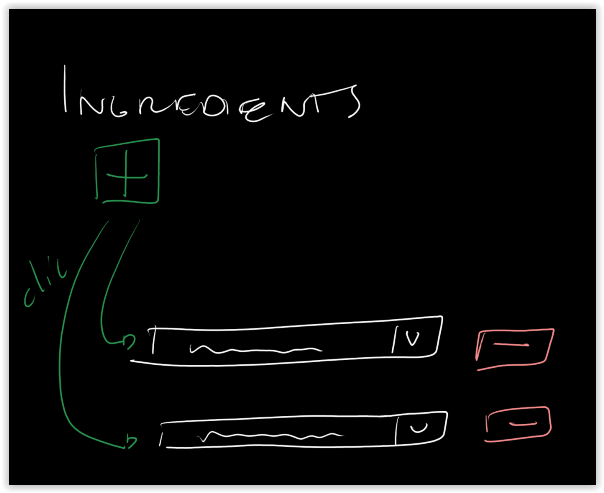 INGREDIENTS
+
clic
-
-